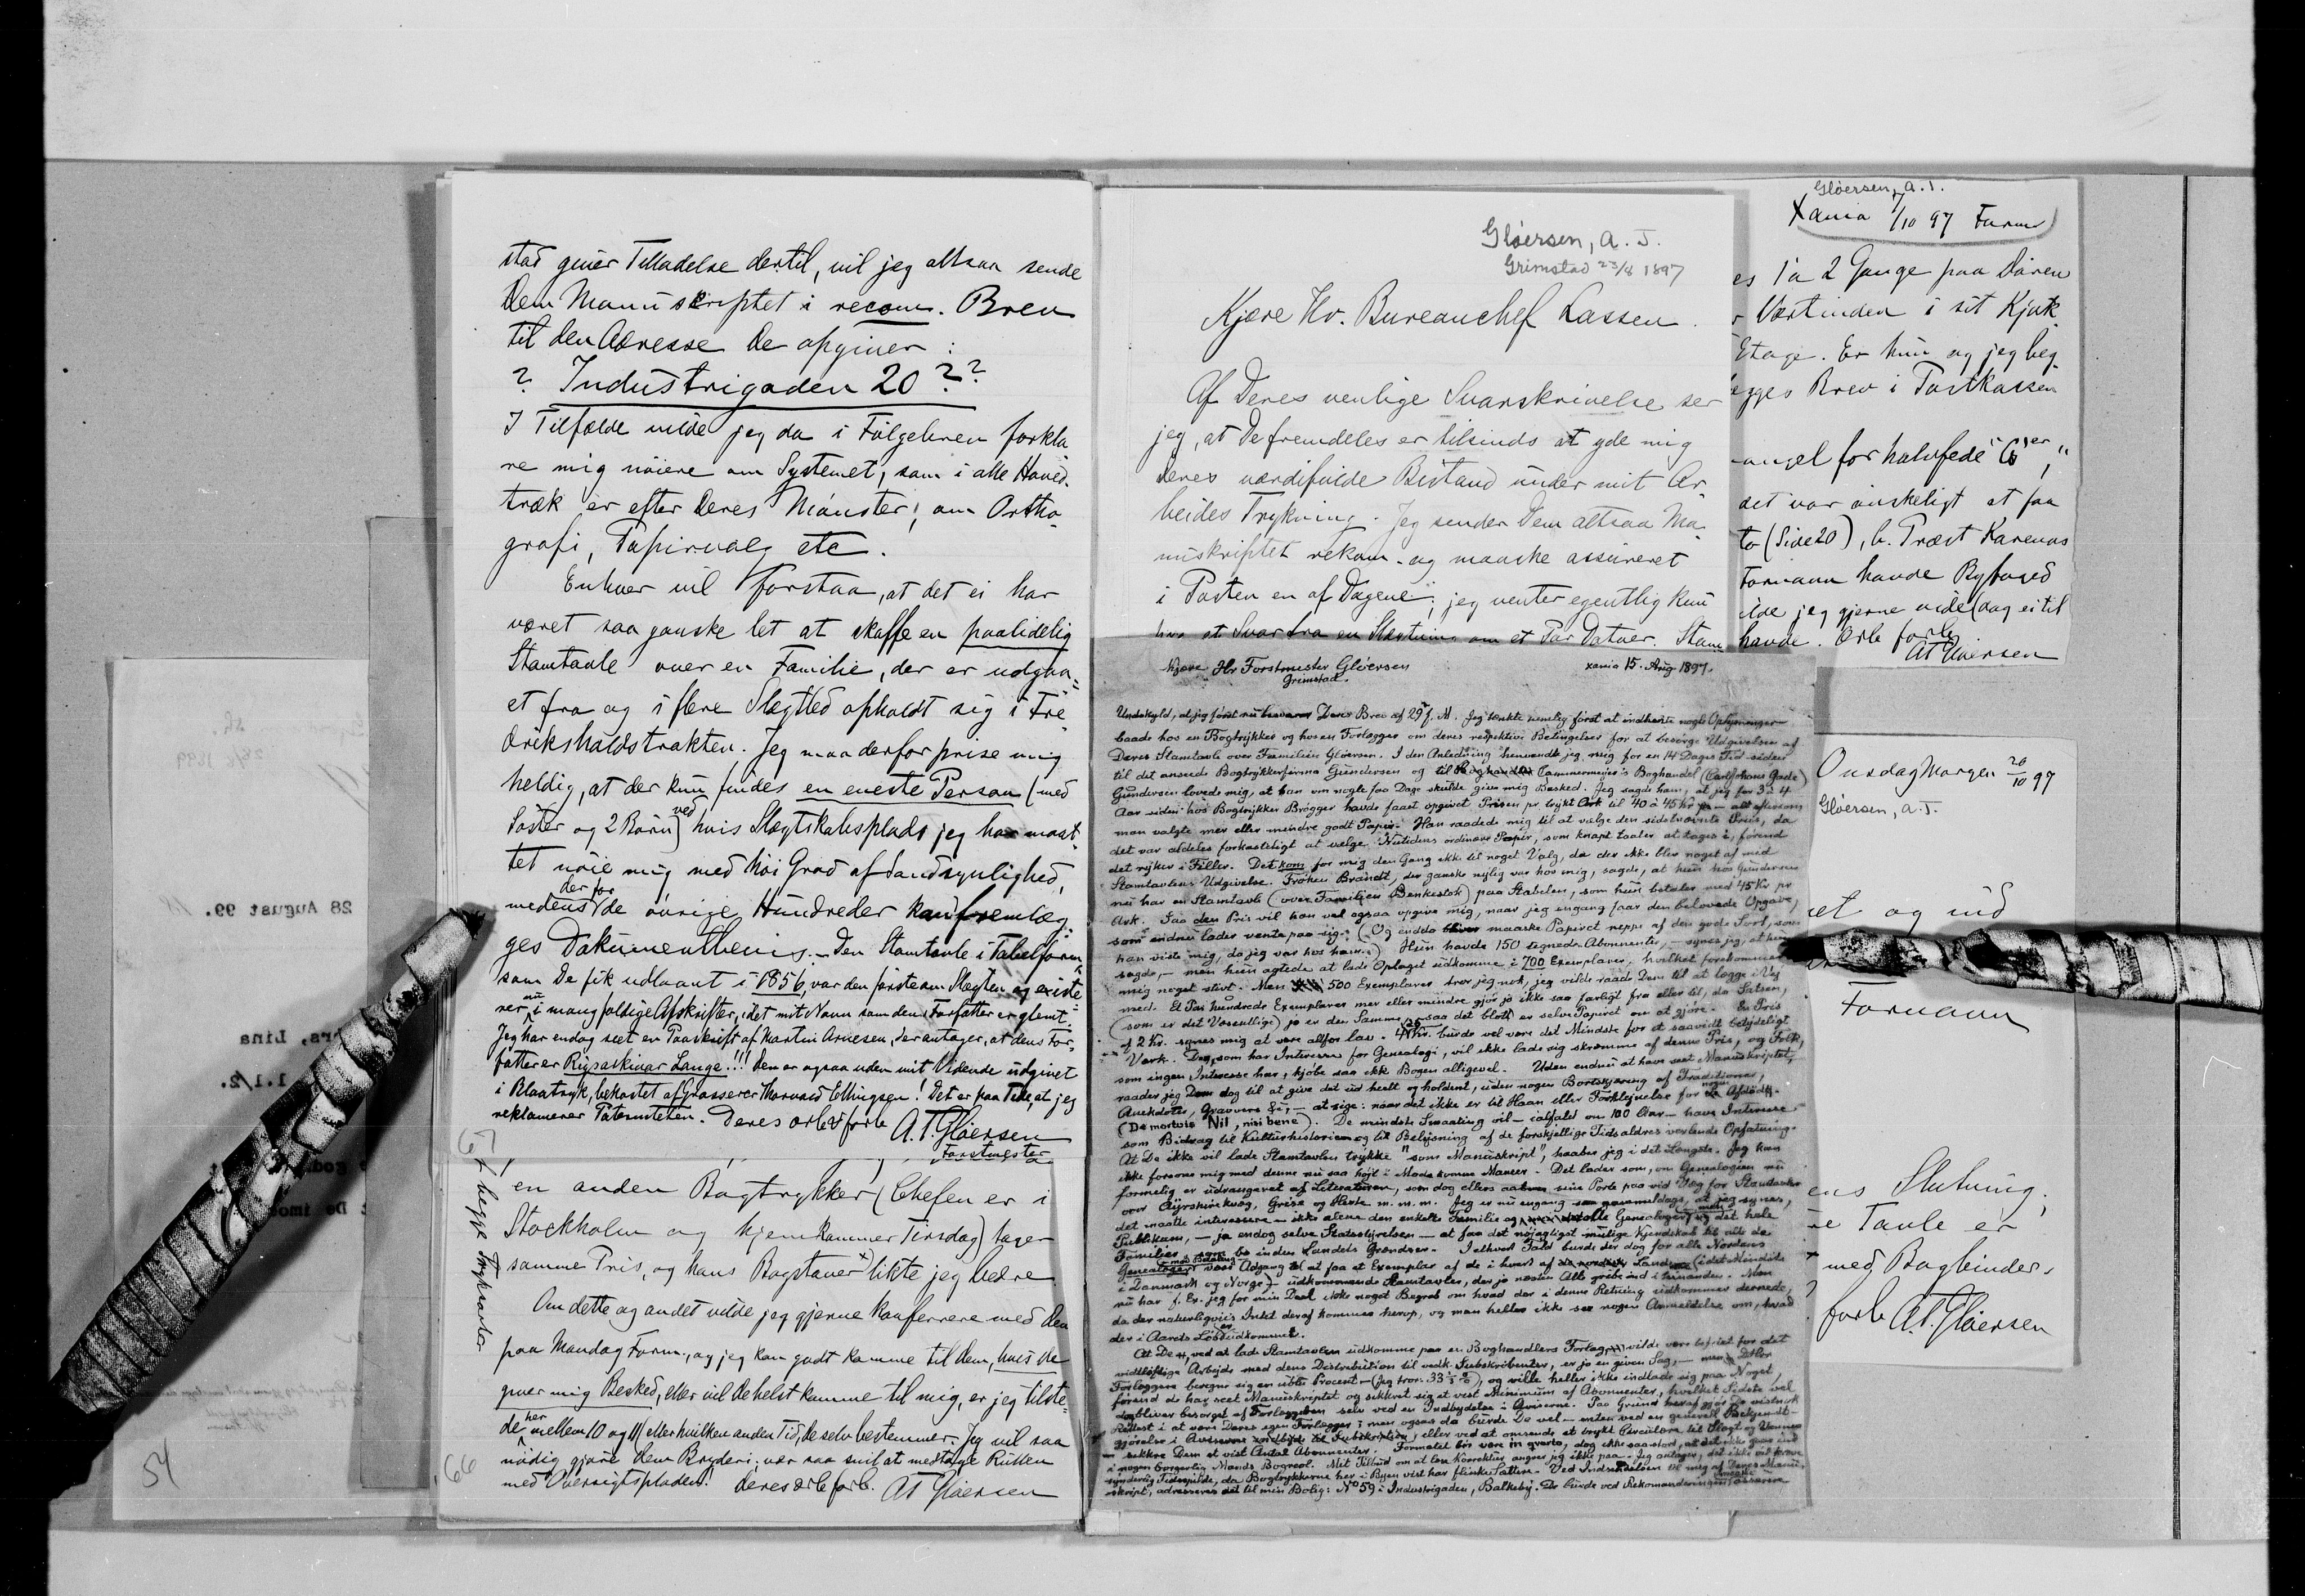 stad giver Tilladelse dertil, vil jeg altsaa sende
Dem Manuskriptet i recom. Brev
til den Adresse De opgiver:
? Industrigaden 20??
I Tilfælde vilde jeg da i Følgebrev forkla
re mig nøiere om Systemet, som i alle Hoved-
træk er efter Deres Mønster; om Ortho-
grafi, Papirvalg etc.
Enhver vil forstaa, at det ei har
været saa ganske let at skaffe en paalidelig
Stamtavle over en Familie, der er udgaa-
et fra og i flere Slægtled opholdt sig i Fre-
driksholdstrakten. Jeg maa derfor prise mig
heldig, at der kun findes en eneste Person (med
Søster og 2 Børn) ved hvis Slægtskabsplads jeg har maat-
tet nøie mig med høi Grad af Sandsynlighed,
medens der for de øvrige Hundreder kan fremlæg-
ges Dokumentbevis. - Den Stamtavle i Tabelform
som De fik udlaant i 1856, var den første om Slægten og existe-
rer nu i mangfoldige Afskrifter, idet mit Navn som dens Forfatter er glemt.
Jeg har endog seet en Paaskrift af Martin Arnesen, der antager, at dens For-
fatter er Rigsarkivar Lange!!! Den er ogsaa uden mit Vidende udgivet
i Blaatryk, bekostet af Grosserer Thorvald Ellingsen! Det er paa Tide, at jeg
reklamerer Paterniteten. Deres ærb forb A. T. Gløersen
Forstmester
67
begge Trykprøver
en anden Bogtrykker (Chefen er i
Stockholm og hjemkommer Tirsdag) tager
samme Pris, og hans Bogstaver likte jeg bedre
Om dette og andet vilde jeg gjerne konferrere med Dem
paa Mandag Form., og jeg kan godt komme til Dem, hvis De
giver mig Besked, eller vil De helst komme til mig, er jeg tilste-
de her mellem 10 og 11 eller hvilken anden Tid, De selv bestemmer. Jeg vil saa
nødig gjøre Dem Bryderi; vær saa snil at medtage Rullen
med Oversigtspladen! Deres ærb forb. A T Gløersen
66
54
28 August 99.
Lina
1.1/2.
Gløersen, A. T.
Grimstad 23/8 1897
Kjære Hr. Bureauchef Lassen.
Af Deres venlige Svarskrivelse ser
jeg, at De fremdeles er tilsinds at yde mig
Deres værdifulde Bistand under mit Ar-
beides Trykning. Jeg sender Dem altsaa Ma-
nuskriptet rekom. og maaske assureret
i Posten en af Dagene; jeg venter egentlig kun
paa et Svar fra en Slægtning om et Par Datoer. Stam
Kjære Hr Forstmester Gløersen
Grimstad.
Xania 15. Aug 1897.
Undskyld, at jeg først nu besvarer Deres Brev af 29 f. M. Jeg tænkte nemlig først at indhente nogle Oplysninger
baade hos en Bogtrykker og hos en Forlægger om deres respektive Betingelser for at besørge Udgivelsen af
Deres Stamtavle over Familien Gløersen. I den Anledning henvendte jeg mig for en 14 Dages Tid siden
til det ansede Bogtrykkerfirma Gundersen og til Cammermeyer's Boghandel (Carl Johans Gade)
Gundersen lovede mig, at han om nogle faa Dage skulde give mig Besked. Jeg sagde ham, at jeg for 3 à 4
Aar siden hos Bogtrykker Brøgger havde faaet opgivet Prisen pr trykt Ark til 40 à 45 Kr - alt eftersom
man valgte mer eller mindre godt Papir. Han raadede mig til at vælge den sidstnævnte Pris, da
det var aldeles forkasteligt at vælge Nutidens ordinære Papir, som knapt taaler at tages i, førend
det ryker i Filler. Det kom for mig den Gang ikke til noget Valg, da der ikke blev noget af med
Stamtavlens Udgivelse. Frøken Brandt, der ganske nylig var hos mig, sagde, at hun hos Gundersen
nu har en Stamtavle (over Familien Benkestok) paa Stabelen, som hun betaler med 45 Kr pr
Ark. Saa den Pris vil han vel ogsaa opgive mig, naar jeg engang faar den belovede Opgave,
som endnu lader vente paa sig. (Og endda maaske Papiret neppe af den gode Sort, som
han viste mig, da jeg var hos ham.) Hun havde 150 tegnede Abonnenter, - synes jeg, at hun
sagde, - men hun agtede at lade Oplaget udkomme i 700 Exemplarer, hvilket forekommer
mig noget stivt. Men 500 Exemplarer tror jeg nok, jeg vilde raade Dem til at lægge i Vej
med. Et Par hundrede Exemplarer mer eller mindre gjør jo ikke saa farligt fra eller til, da Satsen,
(som er det Væsentlige) jo er den Samme, saa det blot er selve Papiret om at gjøre. En Pris
af 2 Kr. synes mig at være altfor lav. 4 Kr. burde vel være det Mindste for et saavidt betydeligt
Værk. Den, som har Interesse for Genealogi, vil ikke lade sig skræmme af denne Pris, og Folk,
som ingen Interesse har, kjøbe saa ikke Bogen alligevel. Uden endnu at have seet Manuskriptet,
raader jeg Dem dog til at give det ud heelt og holdent, uden nogen Bortskjæring af Traditioner,
Anekdoter, Gravvers &c, - at sige: naar det ikke er til Haan eller Forklejnelse for nogen Afdød.
(De mortuis Nil, nisi bene). De mindste Smaating vil - ialfald om 100 Aar - have Interesse
som Bidrag til Kulturhistorien og til Belysning af de forskjellige Tidsaldres vexlende Opfatning.
At De ikke vil lade Stamtavlen trykke "som Manuskript", haaber jeg i det Længste. Jeg kan
ikke forsone mig med denne nu saa højt i Mode komne Maneer. Det lader som, om Genealogien nu
formelig er udrangeret af Literaturen, som dog ellers aabner sine Porte paa vid Væg for Stamtavler
over Ayrshirekvæg, Grise og Heste m. m. m. Jeg er nu engang saa gammeldags, at jeg synes,
det maatte interessere - ikke alene den enkelte Familie og alle Genealoger, men det hele
Publikum, - ja endog selve Statsstyrelsen - at faa det nøjagtigst mulige Kjendskab til alle de
Familier, som bo inden Landets Grændser. I ethvert Fald burde der dog for alle Nordens
Genealoger mod Betaling være Adgang til at faa et Exemplar af de i hvert af Landene (i det Mindste
i Danmark og Norge) udkommende Stamtavler, der jo næsten Alle gribe ind i hinanden. Men
nu har f. Ex. jeg for min Deel ikke noget Begreb om hvad der i denne Retning udkommer dernede,
da der naturligvis Intet deraf kommer herop, og man heller ikke ser nogen Anmeldelse om, hvad
der i Aarets Løb er udkommet.
At De, ved at lade Stamtavlen udkomme paa en Boghandlers Forlag, vilde være befriet for det
vidtløftige Arbejde med dens Distribution til vedk. Subskribenter, er jo en given Sag, - men
Forlæggere beregne sig en viss Procent - (jeg tror 33 1/3 %), og ville heller ikke indlade sig paa Noget
førend de har seet Manuskriptet og sikkret sig et vist Minimum af Abonnenter, hvilket Sidste vel
bliver besørget af Forlæggeren selv ved en Indbydelse i Aviserne. Paa Grund heraf gjør De vistnok
Rettest i at være Deres egen Forlægger; men ogsaa da burde De vel - enten ved en generell Bekjendt-
gjørelse i Aviserne, eller ved at omsende et trykt Circulære til Slægt og Venner
sikkre Dem et vist Antal Abonnenter. Formatet bør være in qvarto, dog ikke saa stort, at det ikke gaar ind
i nogen borgerlig Mands Bogreol. Mit Tilbud om at læse Korrektur angrer jeg ikke paa. Jeg antager, det ikke vil kræve
synderlig Tidsspilde, da Bogtrykkerne her i Byen vist har flinke Sættere. Ved Indsendelsen til mig af Deres Manu-
skript, adresseres det til min Bolig: No 59 i Industrigaden, Balkeby. De burde ved Rekomanderingen maaske assurere
Gløersen, A. T.
Xania /10 97 Form
es 1 à 2 Gange paa Døren
Værtinden i sit Kjøk
Etage. Er hun og jeg beg
ægges Brev i Postkassen
angel for halvfede "G'er",
det var ønskeligt at faa
to (Side 20), b. Præst Karenas
Fornavn havde Byfoged
ilde jeg gjerne vide (dog ei til
havde. Ærb forb
A T Gløersen
Onsdag Morgen 20/10 97
Gløersen, A. T.
et og ind
Fornavn
ens Slutning;
e Tavle er
med Bogbinder
forb A. T. Gløersen